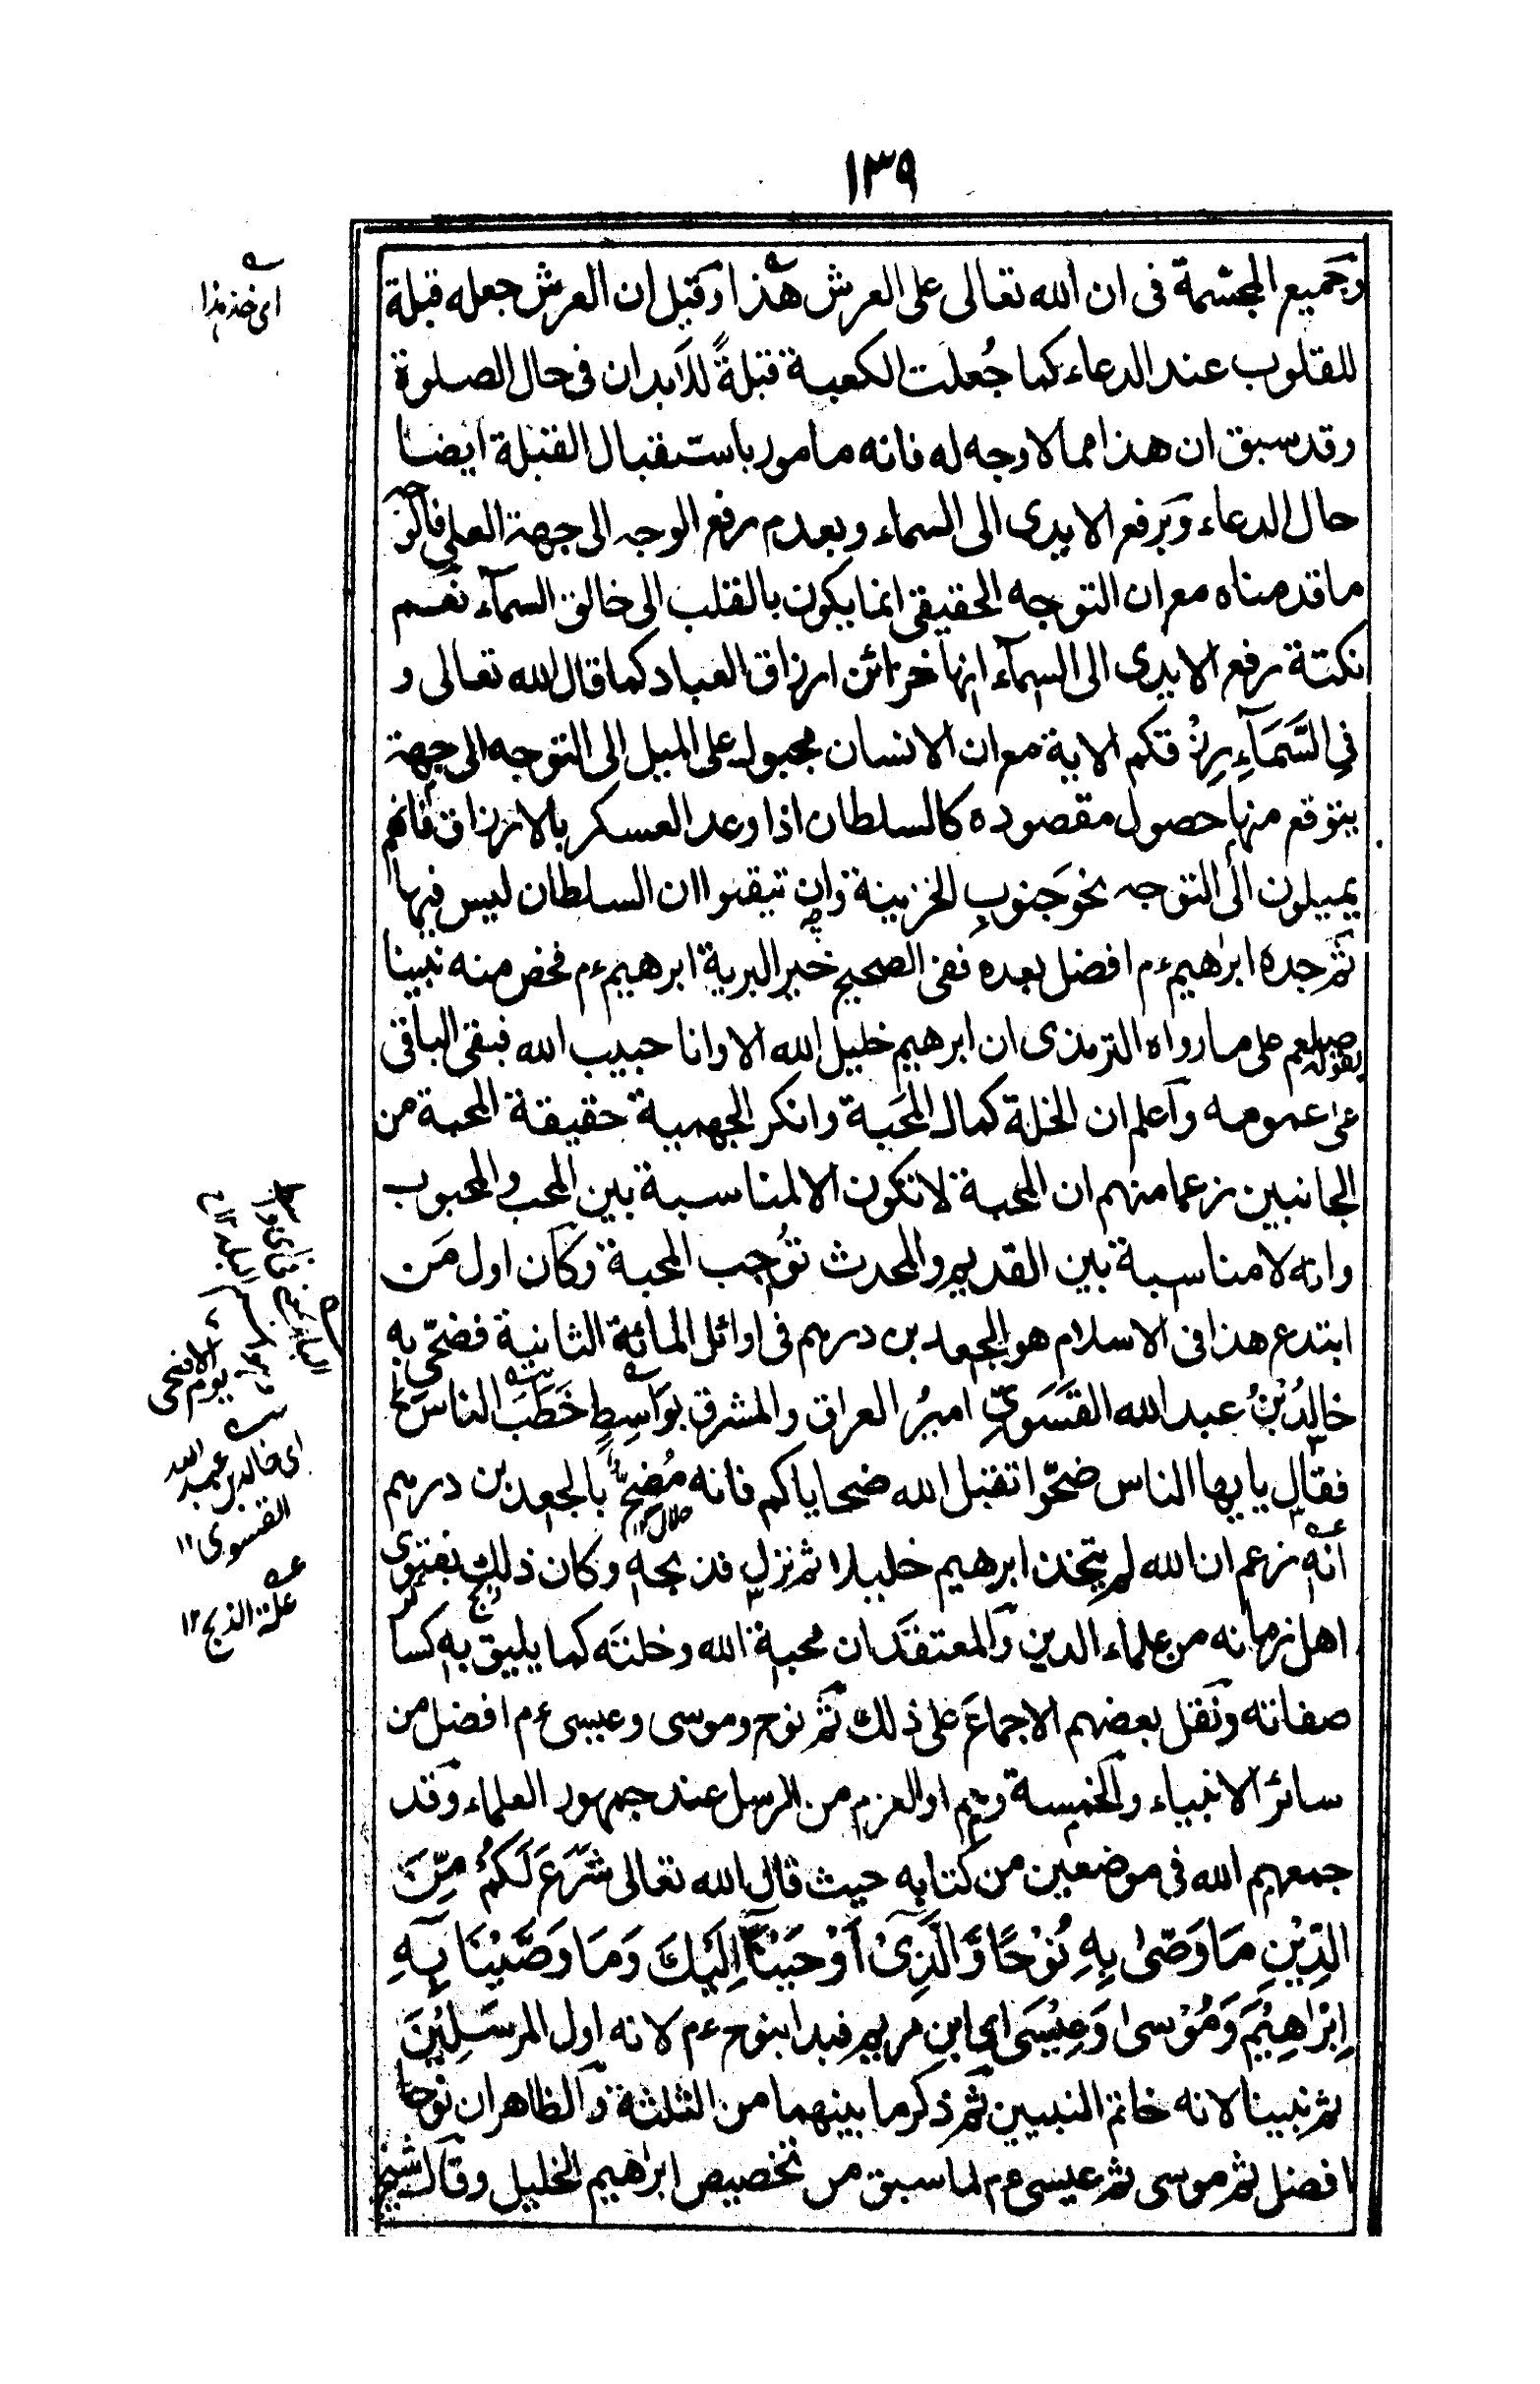 ١٣٩
وجميع المجسمة فى ان الله تعالى على العرش هذا وقيل ان العرش جعله قبلة
للقلوب عند الدعاء كما جُعلت الكعبة قبلةً للابدان فى حال الصلوة
وقد سبق ان هذا مما لا وجه له فانه مامور باستقبال القبلة ايضا
حال الدعاء وبرفع الايدى الى السماء وبعدم رفع الوجه الى جهة العلى فالوجه
ما قدمناه مع ان التوجه الحقيقى انما يكون بالقلب الى خالق السمآء نعم
نكتة رفع الايدى الى السمآء انها خزائن ارزاق العباد كما قال الله تعالى و
فِى السَّمَآءِ رِزْقكم الاية مع ان الانسان مجبول على الميل الى التوجه الى جهة
يتوقع منها حصول مقصوده كالسلطان اذا وعد العسكر بالارزاق فانهم
يميلون الى التوجه نحو جنوب الخزينة وان تيقنوا ان السلطان ليس فيها
ثم جده ابراهيم ءم افضل بعده ففى الصحيح خير البرية ابرهيم ءم فخص منه نبينا
صلعم بقوله على ما رواه الترمذى ان ابرهيم خليل الله الا وانا حبيب الله فبقى الباقى
على عمومه وآعلم ان الخلة كمال المحَبة وانكر الجهمية حقيقة المحبة من
الجانبين زعما منهم ان المحبة لا تكون الا لمناسبة بين المحب والمحبوب
وانه لا مناسبة بين القديم والمحدث تُوجب المحبة وكان اول مَن
ابتدع هذا فى الاسلام هو الجعد بن درهم فى اوائل المائة الثانية فضحّى به
خالدُ بْنُ عبد الله القَسَوِىّ اميرُ العراق والمشرق بوَاسِطٍ خَطَبَ الناس
فقال يا يها الناس ضحّوا تقبل الله ضحاياكم فانه مُضحٍّ بالجعد بن درهم
انه زعم ان الله لم يتخذ ابرهيم خليلا ثم نزل فذبحه وكان ذلك بفتوى
اهل زمانه من علماء الدين والمعتقَد ان محبة الله وخلته كما يليق به كسائر
صفاته ونقل بعضهم الاجماعَ على ذلك ثم نوح وموسى وعيسى ءم افضل من
سائر الانبياء والخمسة وهم اولو العزم من الرسل عند جمهور العلماء وقد
جمعهم الله فى موضعين من كتابه حيث قال الله تعالى شَرَعَ لَكُمْ مِّنَ
الدِّيْنِ مَا وَصّٰى بِهٖ نُوْحًا وَّالَّذِىْٓ اَوْحَيْنَآ اِلَيْكَ وَمَا وَصَّيْنَا بِهٖٓ
اِبْرٰهِيْمَ وَمُوْسٰى وَعِيْسَى اى ابن مريم فبدا بنوح ءم لانه اول المرسَلِيْنَ
ثم نبينا لانه خاتم النبيين ثم ذكر ما بينهما من الثلثة والظاهر ان نوحا
افضل ثم موسى ثم عيسى ءم لما سبق من تخصيص ابراهيم الخليل وقال شيخ
اى خذ هذا
يوم الاضحى
اى خالد بن عبد الله
القسوى ١٢
علة الذبح ١٢